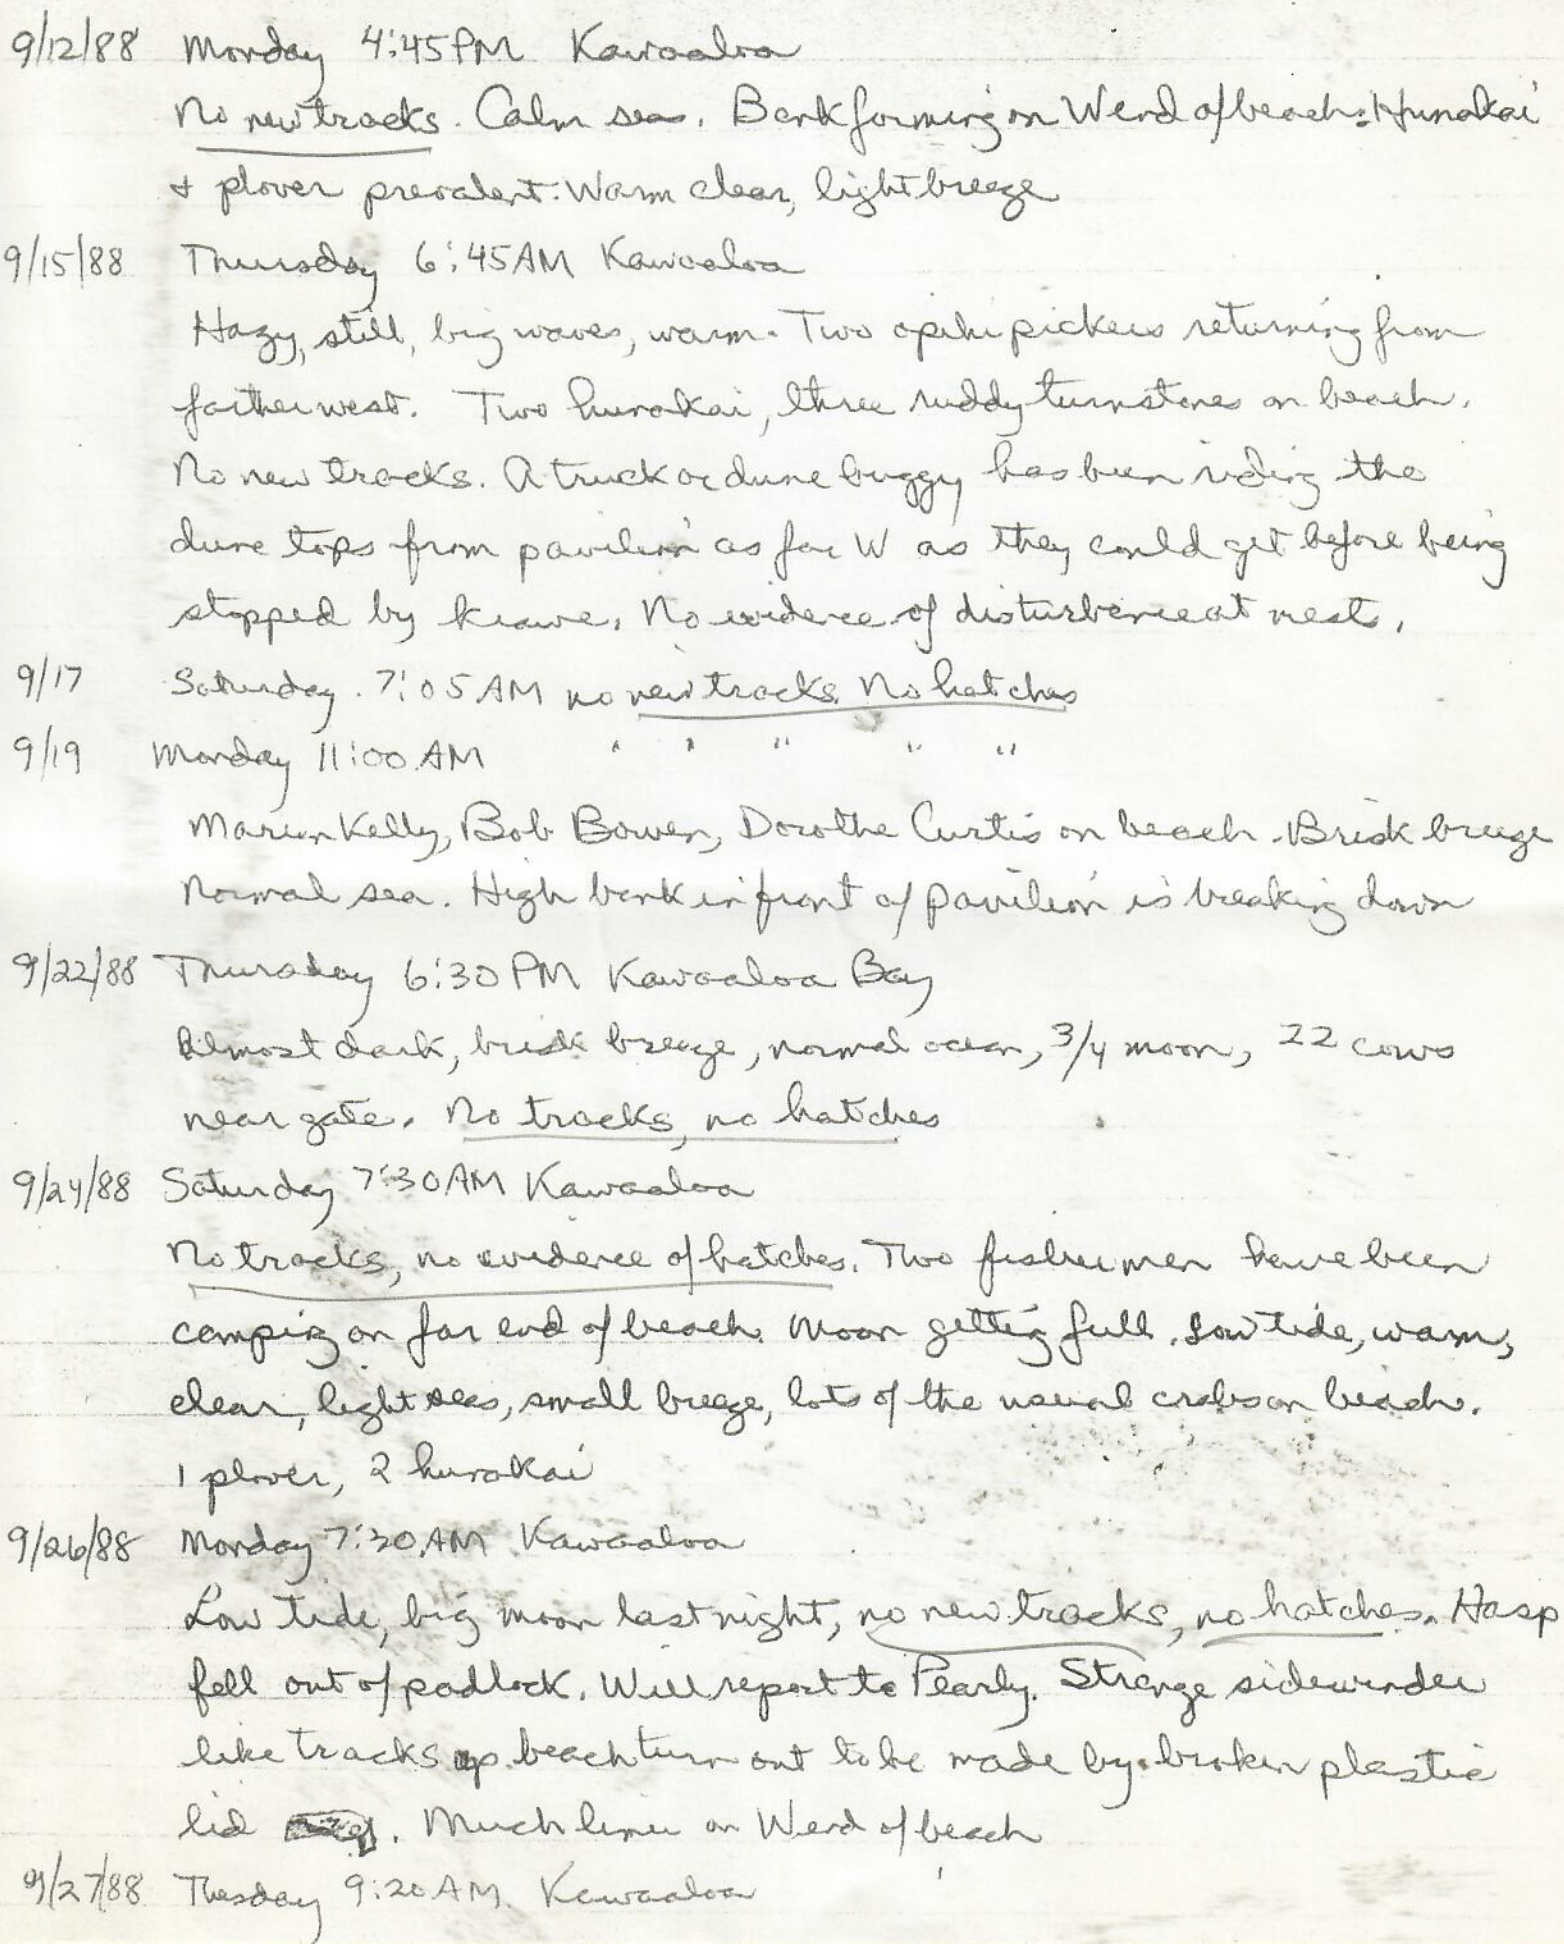 9/12/88 Monday 4:45PM Kawaaloa
No new tracks. Calm sea. Bank forming on W end of beach. Hunakai
+ plover prevalent. Warm clear, light breeze
9/15/88 Thursday 6:45AM Kawaaloa
Hazy, still, big waves, warm. Two opihi pickers returning from
farther west. Two hunakai, three ruddy turnstones on beach.
No new tracks. A truck or dune buggy has been riding the
dune tops from pavilion as far W as they could get before being
stopped by kiawe. No evidence of disturbance at nests.
9/17 Saturday. 7:05AM no new tracks. No hatches
9/19 Monday 11:00 AM " " " " "
Marion Kelly, Bob Bowen, Dorothe Curtis on beach. Brisk breeze
Normal sea. High bank in front of pavilion is breaking down
9/22/88 Thursday 6:30 PM Kawaaloa Bay
Almost dark, brisk breeze, normal ocean, 3/4 moon, 22 cows
near gate. No tracks, no hatches
9/24/88 Saturday 7:30AM Kawaaloa
No tracks, no evidence of hatches. Two fishermen have been
camping on far end of beach. Moon getting full. Low tide, warm,
clear, light seas, small breeze, lots of the usual crabs on beach.
1 plover, 2 hunakai
9/26/88 Monday 7:30AM Kawaaloa
Low tide, big moon last night, no new tracks, no hatches. Hasp
fell out of padlock. Will report to Pearly. Strange sidewinder
like tracks up beach turn out to be made by broken plastic
lid. Much limu on W end of beach
9/27/88 Tuesday 9:20AM. Kawaaloa